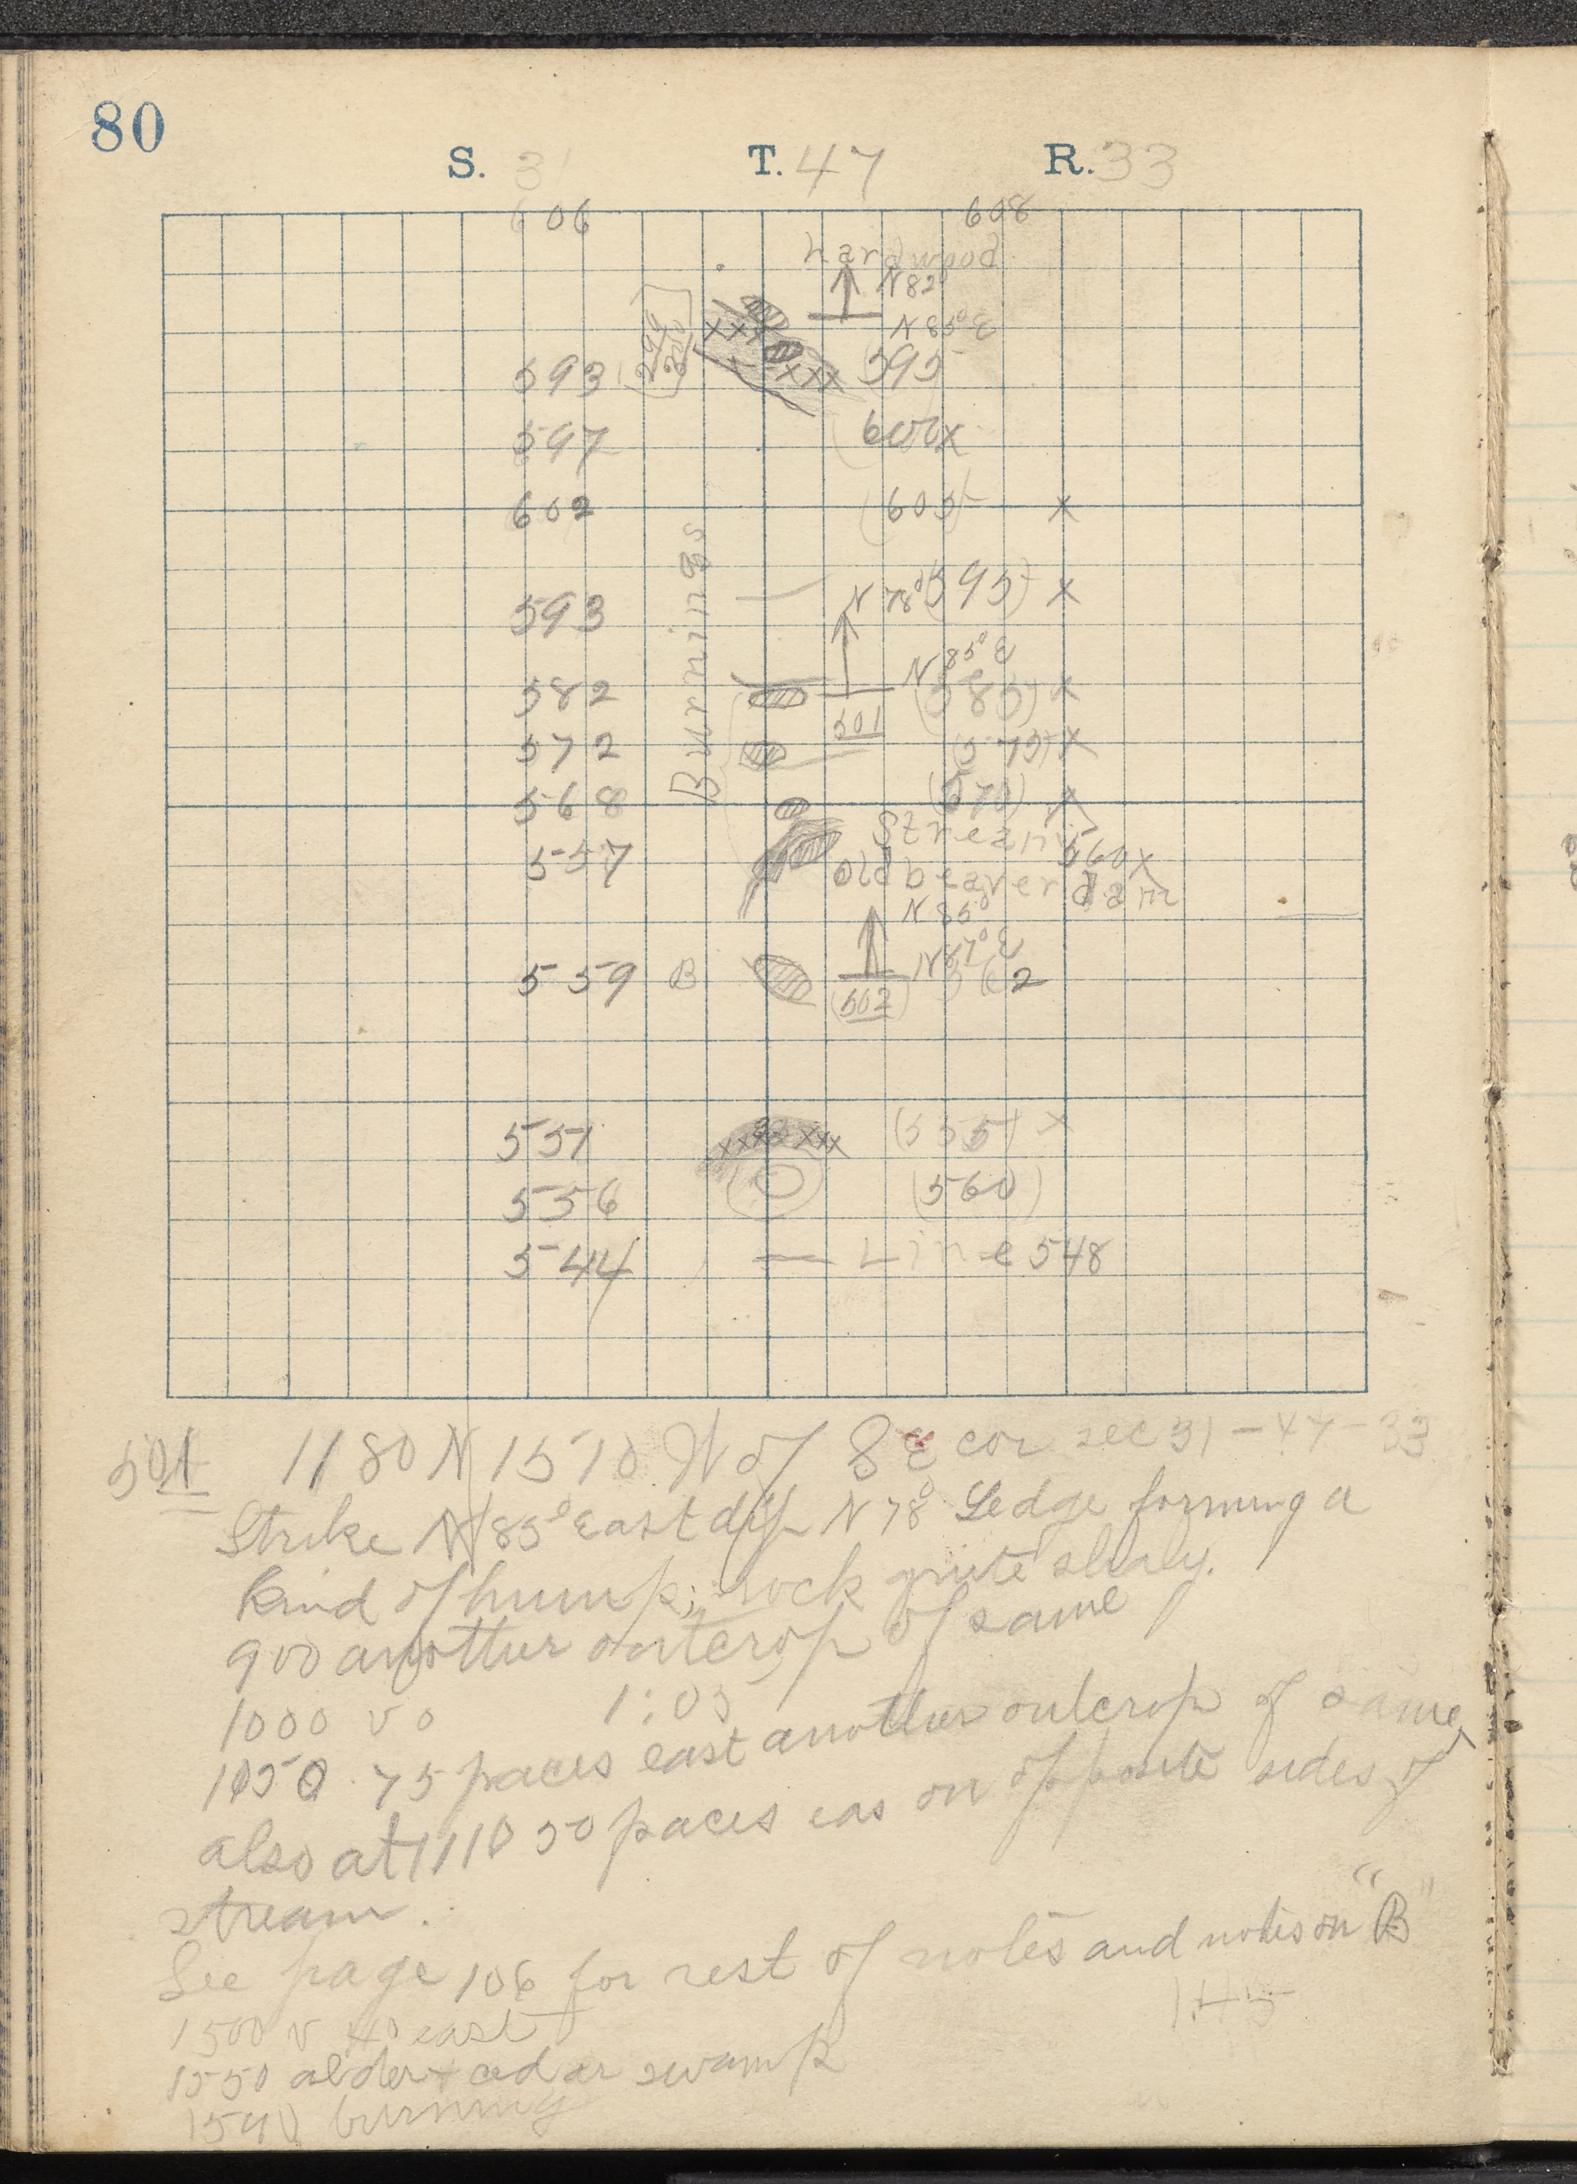 80
S. 31 T. 47 R. 33
606 608
hardwood
N 82°
N 85° E
593 595
597 600 x
602 (605) x
Burnings
593 N 78° (595) x
N 85° E
582 (585) x
501
572 (575) x
568 (570) x
Stream
557 560 x
Old beaver dam
N 85°
N 87° E
559 B 562
(502)
551 xxx xxx (555) x
556 (560)
544 Line 548
501 1180 N 1570 W of SE cor sec 31-47-33
Strike N 85° East dip N 78° Ledge forming a
kind of hump; rock quite slaty.
900 another outcrop of same
1000 v o 1:05
1050 75 paces east another outcrop of same,
also at 1110 50 paces eas on opposite sides of
stream.
See page 106 for rest of notes and notes on "B"
1:45
1500 v 40 east
1550 alder + cedar swamp
1540 burning